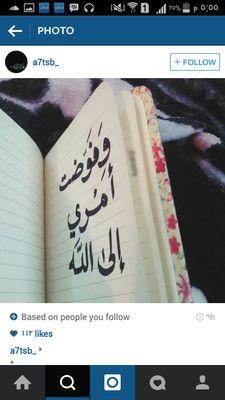 PHOTO
a7tsb_
+ FOLLOW
وفوضت
أمري
إلى الله
Based on people you follow
١١٣ likes
a7tsb_